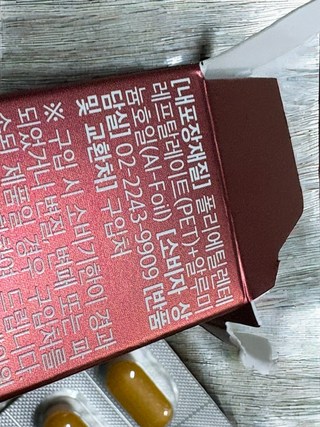 [내포장재질] 폴리에틸레테
레프탈레이트(PET)+알루미
늄호일(Al-Foil) [소비자 상
담실] 02-2243-9909 [반품
및 교환처] 구입처
※ 구입 시 소비기한이 경과
되었거나 변질, 변패 또는 파
손된 제품일 경우 구입처를
드립니다